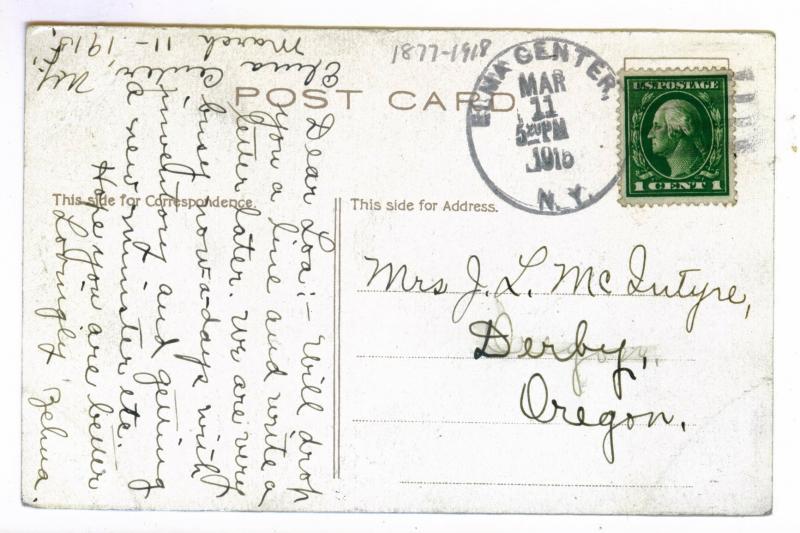 1877-1918
POST CARD
ELMA CENTER,
MAR
11
5 PM
N.Y.
U.S. POSTAGE
1 CENT 1
This side for Correspondence.
This side for Address.
Elma Center, N.Y.
March 11 - 1915,
Dear Loa:- Will drop
you a line and write a
letter later. We are very
busy now-a-days with
inventory and getting
a new minister etc.
Hope you are better
Lovingly Zelma.
Mrs J. L. McIntyre,
Derby,
Oregon.